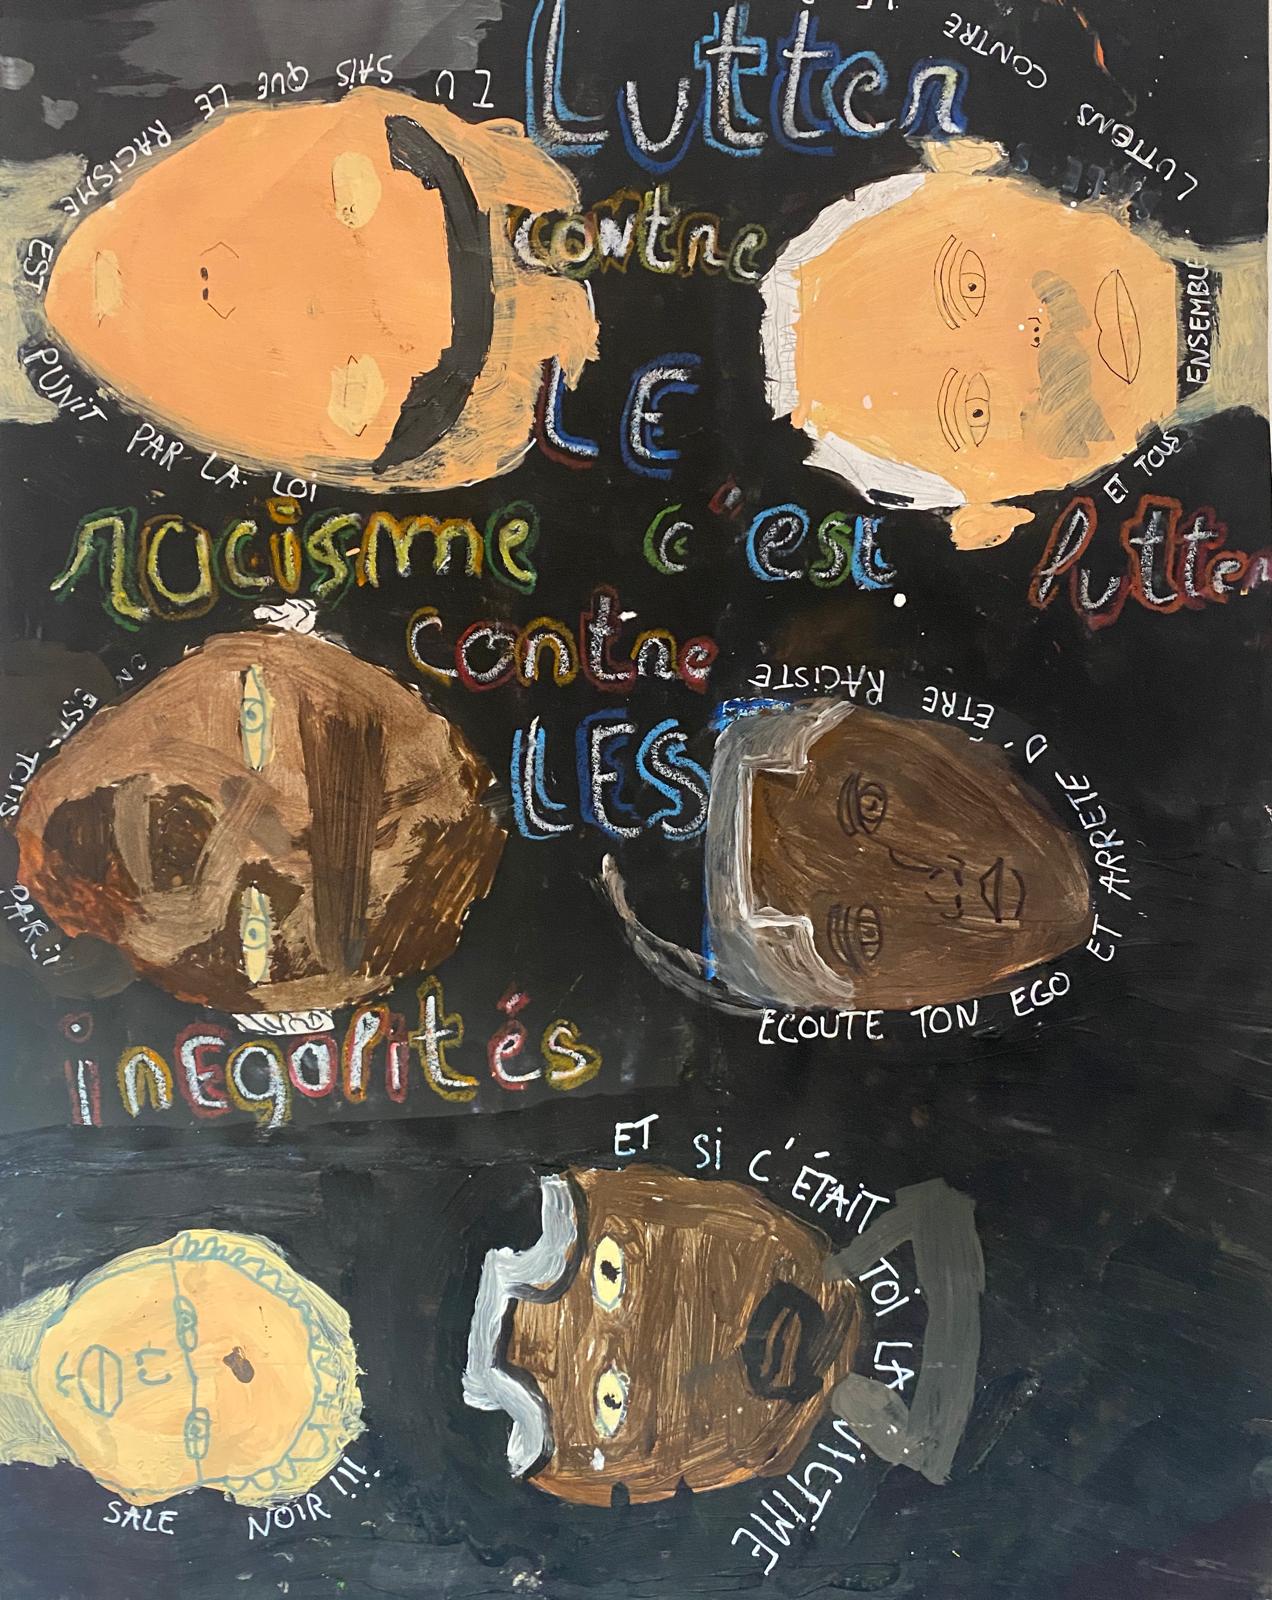 Lutter
contre
LE
racisme c'est lutter
contre
LES
inégalités
TU SAIS QUE LE RACISME EST PUNIT PAR LA LOI
LUTTENS CONTRE
ET TOUS ENSEMBLE.
ON EST TOUS PAREIL
ECOUTE TON EGO ET ARRETE D'ÊTRE RACISTE
SALE NOIR !!!
ET SI C'ÉTAIT TOI LA VICTIME